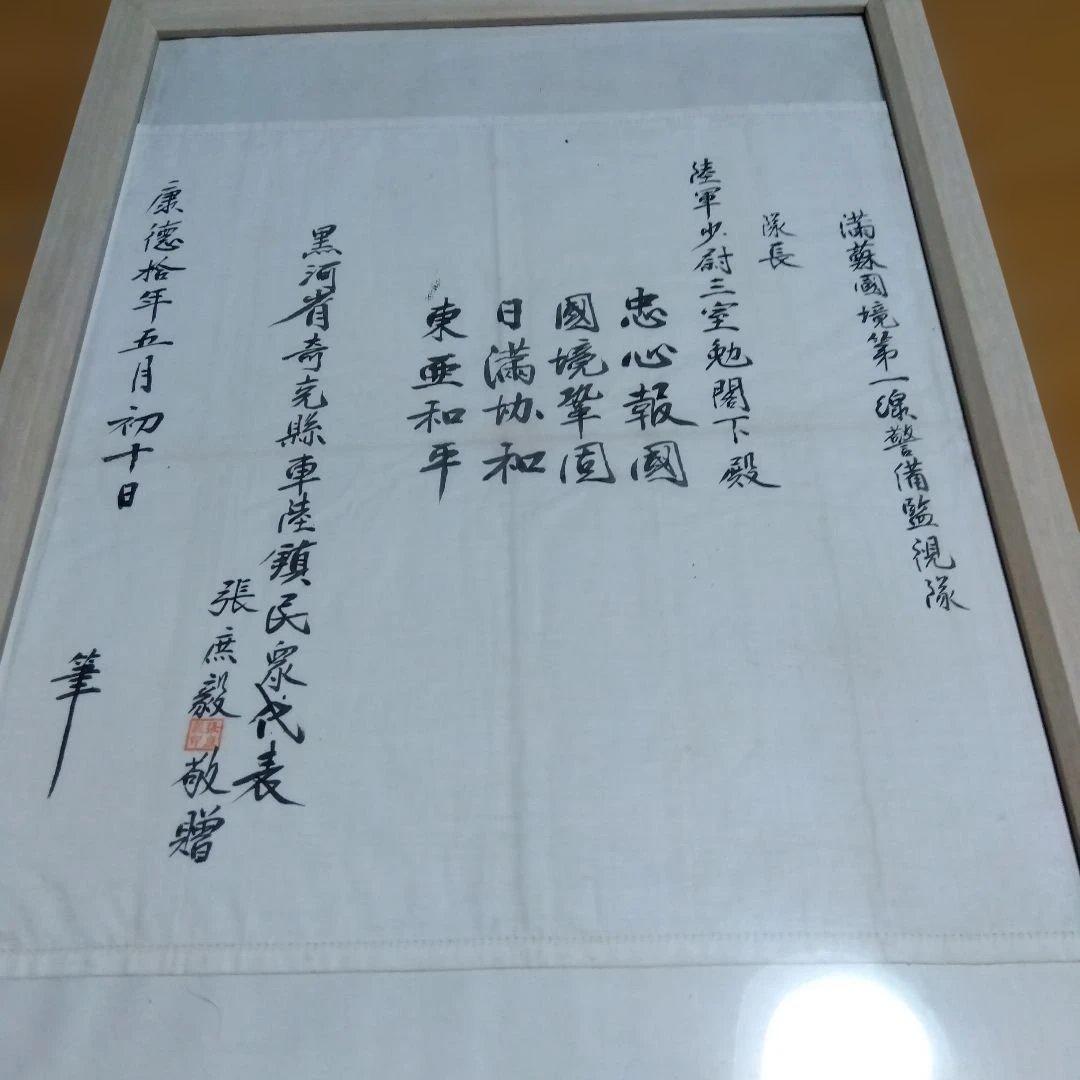 滿蘇國境第一線警備監視隊
隊長
陸軍少尉三室勉閣下殿
忠心報國
國境鞏固
日滿协和
東亜和平
黒河省奇克縣車陸鎮民眾代表
張庶毅敬贈
康德拾年五月初十日
筆